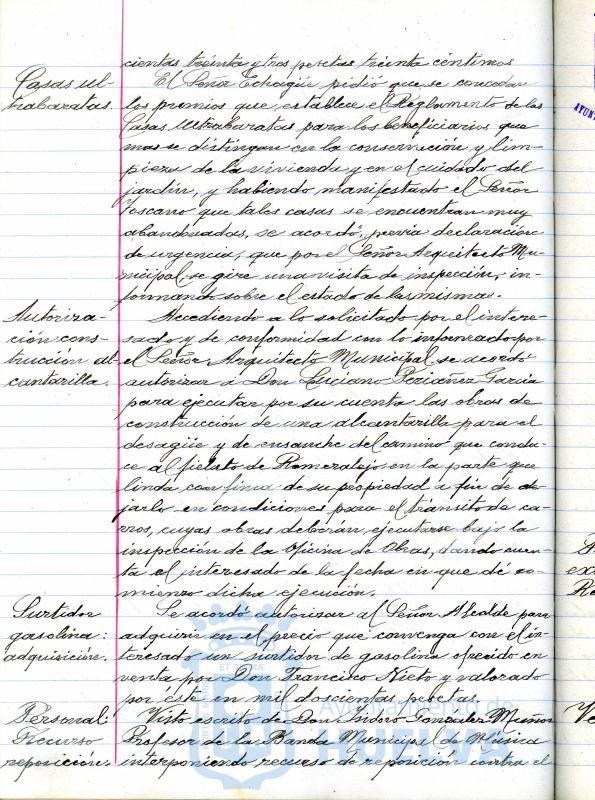 cientas treinta y tres pesetas treinta céntimos
Casas ul-
trabaratas.
El Señor Echagüe pidió que se concedan
los premios que establece el Reglamento de las
Casas Ultrabaratas para los beneficiarios que
mas se distingan en la conservación y lim-
pieza de la vivienda y en el cuidado del
jardín, y habiendo manifestado el Señor
Toscano que tales casas se encuentran muy
abandonadas, se acordó, previa declaración
de urgencia, que por el Señor Arquitecto Mu-
nicipal se gire una visita de inspección, in-
formando sobre el estado de las mismas.
Autoriza-
ción cons-
trucción al-
cantarilla.
Accediendo a lo solicitado por el intere-
sado y de conformidad con lo informado por
el Señor Arquitecto Municipal se acordó
autorizar á Don Luciano Periañez García
para ejecutar por su cuenta las obras de
construcción de una alcantarilla para el
desagüe y de ensanche del camino que condu-
ce al fielato de Romeralejo en la parte que
linda con finca de su propiedad a fin de de-
jarlo en condiciones para el tránsito de ca-
rros, cuyas obras deberán ejecutarse bajo la
inspección de la Oficina de Obras, dando cuen-
ta el interesado de la fecha en que dé co-
mienzo dicha ejecución.
Surtidor
gasolina:
adquisición.
Se acordó autorizar al Señor Alcalde para
adquirir en el precio que convenga con el in-
teresado un surtidor de gasolina ofrecido en
venta por Don Francisco Nieto y valorado
por éste en mil doscientas pesetas.
Personal:
Recurso
reposición.
Visto escrito de Don Isidoro Gonzalez Muñoz
Profesor de la Banda Municipal de Música
interponiendo recurso de reposición contra el
Ayuntamiento de
HUELVA